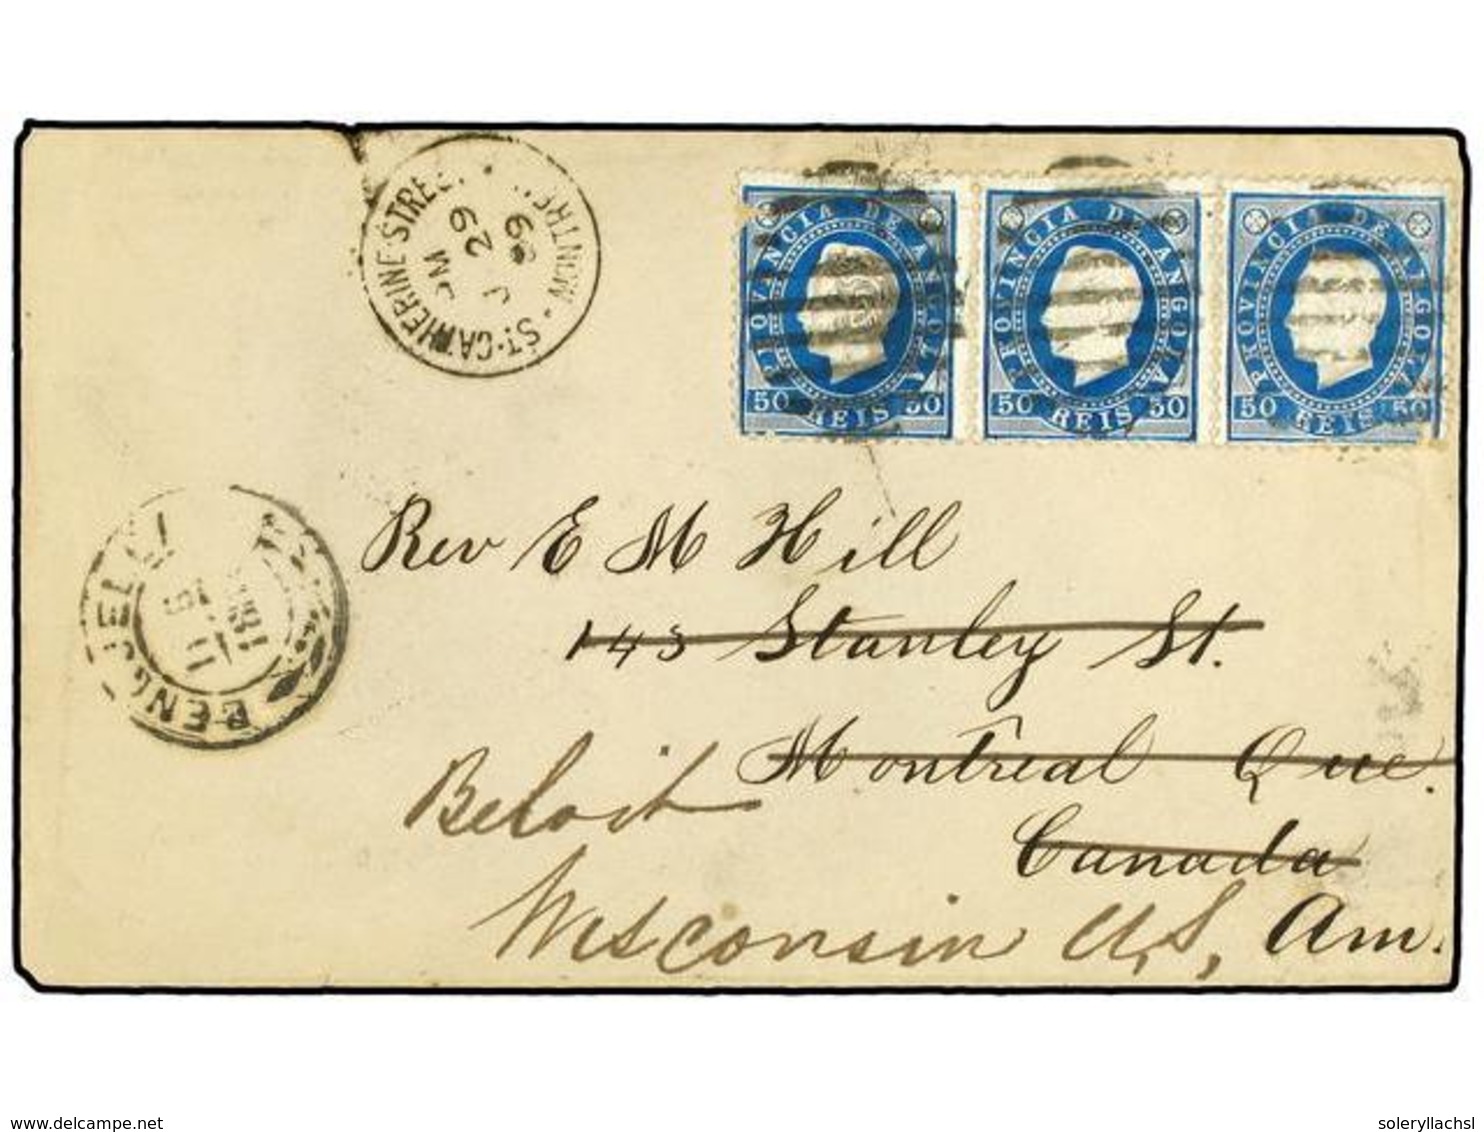 ST. CATHERINE STREET MONTREAL
PM
29
89
PROVINCIA DE ANGOLA
50 REIS 50
PROVINCIA DE ANGOLA
50 REIS 50
PROVINCIA DE ANGOLA
50 REIS 50
BENGUELLA
11
Rev E M Hill
143 Stanley St.
Montreal Que.
Canada
Beloit
Wisconsin U.S, Am.
www.delcampe.net
soleryllachsl